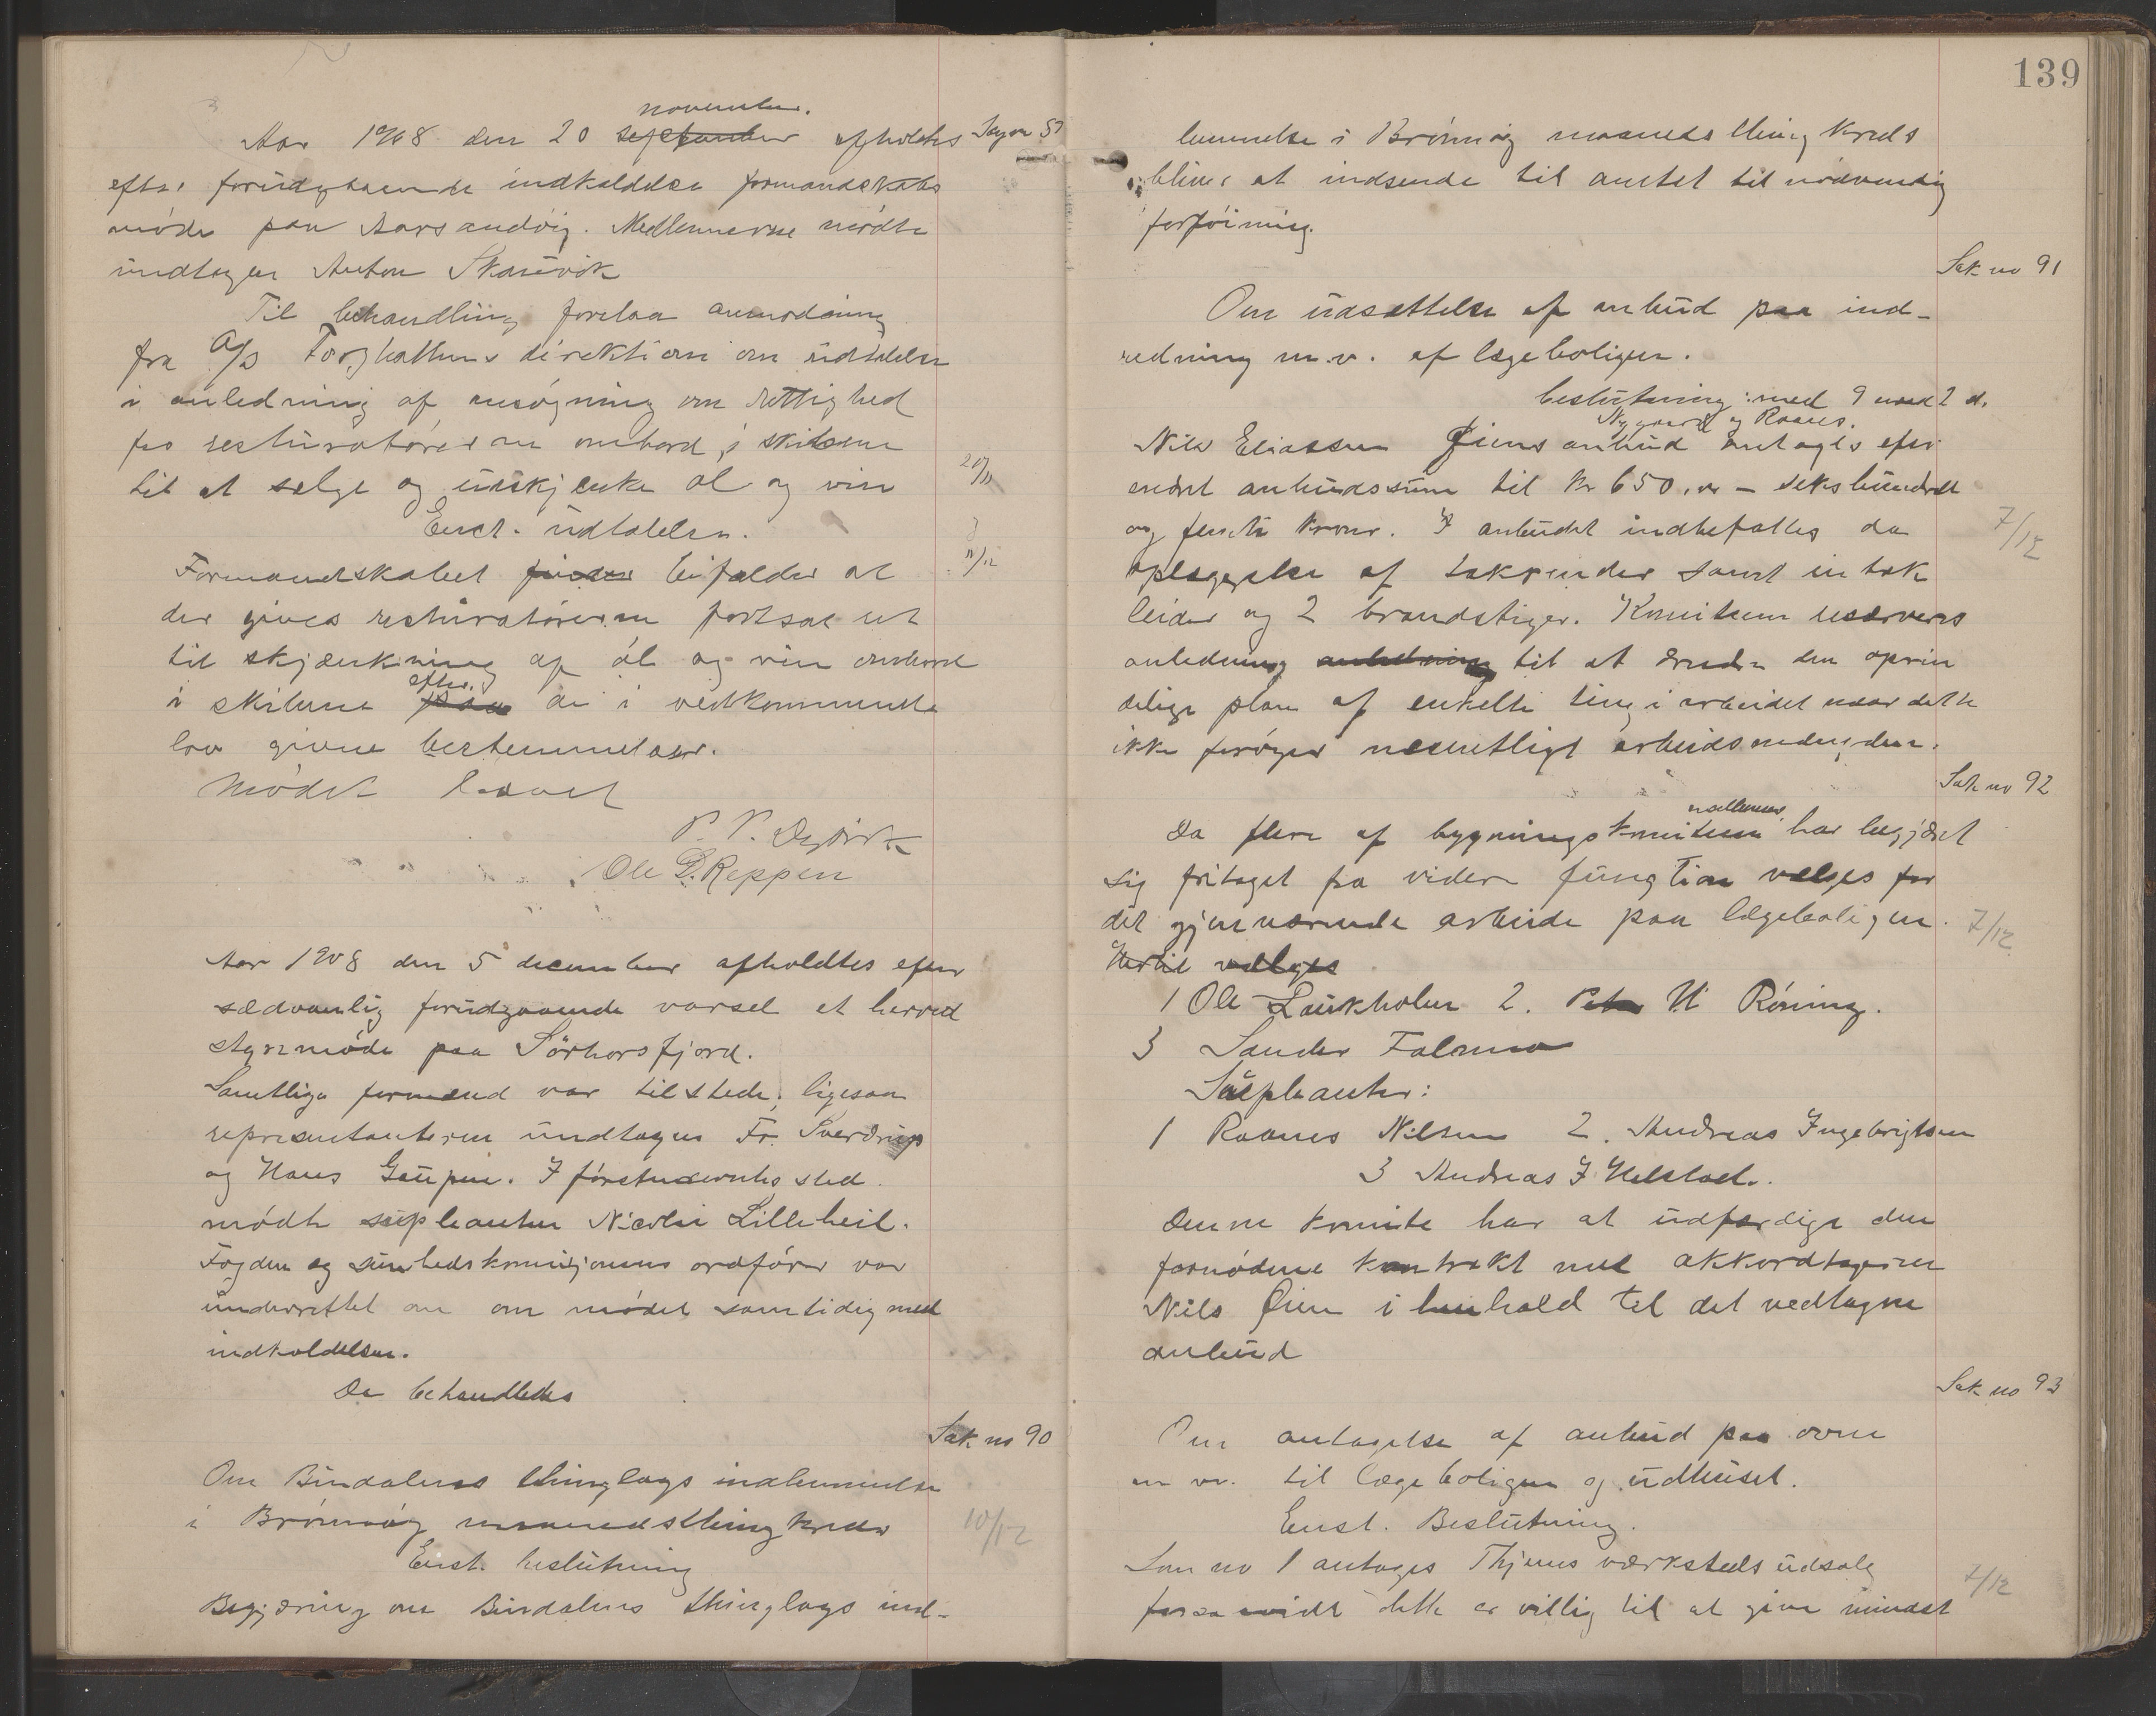 november.
Aar 1908 den 20 september afholdtes Sag no 57
efter forudgaaende indkaldelse formandskabs
møde paa Aarsandøig. Medlemmerne mødte
undtagen Anton Skarsvik
Til behandling forelaa anmodning
fra A/S Torghattens direktion om udtalelse
i anledning af ansøgning om rettighed
for resturatørerne ombord i skibene
til at sælge og udskjænke øl og vin 20/11
Enst. udtalelse.
Formandskabet finder bifalder at 11/12
der gives resturatørerne fortsat ret
til skjænkning af øl og vin ombord
efter
i skibene paa de i vedkommende
lov givne bestemmelser.
Mødet hævet
P. P. Dybvik
Ole D. Reppen
Aar 1908 den 5 december afholdtes efter
sædvanlig forudgaaende varsel et herred
styremøde paa Sørhorsfjord.
Samtlige formænd var tilstede, ligesaa
repræsentanterne undtagen Fr. Sverdrup
og Hans Gaupen. I førstnævntes sted
mødte supleanten Nicolai Lilleheil.
Fogden og sundhedskomisjonens ordfører var
underrettet om om mødet samtidig med
indkaldelsen.
Da behandledes
Sak no 90
Om Bindalens thinglags indlemmelse
i Brønnøy maanedsthingkreds 10/12
Enst. beslutning
Begjæring om Bindalens thinglags ind-
139
lemmelse i Brønnøy maanedsthingkreds
bliver at indsende til amtet til nødvendig
forføining.
Sak no 91
Om udsættelse af anbud paa ind-
redning m.v. af lægeboligen.
beslutning: med 9 mod 2 st.
Nygaard og Raanes.
Nils Eliassen Øiens anbud antages efter
endret anbudssum til kr 650.00 – sekshundrede
og femti kroner. I anbudet indbefattes da 7/12
oplæggelse af takrender samt en tak
leider og 2 brandstiger. Komiteen reserveres
anledning anledning til at ændre den oprin
delige plan af enkelte ting i arbeidet naar dette
ikke forøger væsentligt arbeidsmængden.
Sak no 92
medlemmer
Da flere af bygningskomiteen har begjæret
sig fritaget fra videre fungtion vælges for
det gjenværende arbeide paa lægeboligen. 7/12
Hertil vælges
1 Ole Laukholm 2. Peter N Røning.
3 Sander Falmo
Supleanter:
1 Raanes Nilsen 2. Andreas Ingebrigtsen
3 Andreas J Helstad.
Denne komite har at udfærdige den
fornødene kontrakt med akkordtageren
Nils Øien i henhold til det vedtagne
anbud
Sak no 93
Om antagelse af anbud paa ovne
m v. til lægeboligen og udhuset.
Enst. Beslutning.
Som no 1 antages Thjems værksteds udsalg 7/12
forsaavidt dette er villig til at give mindst